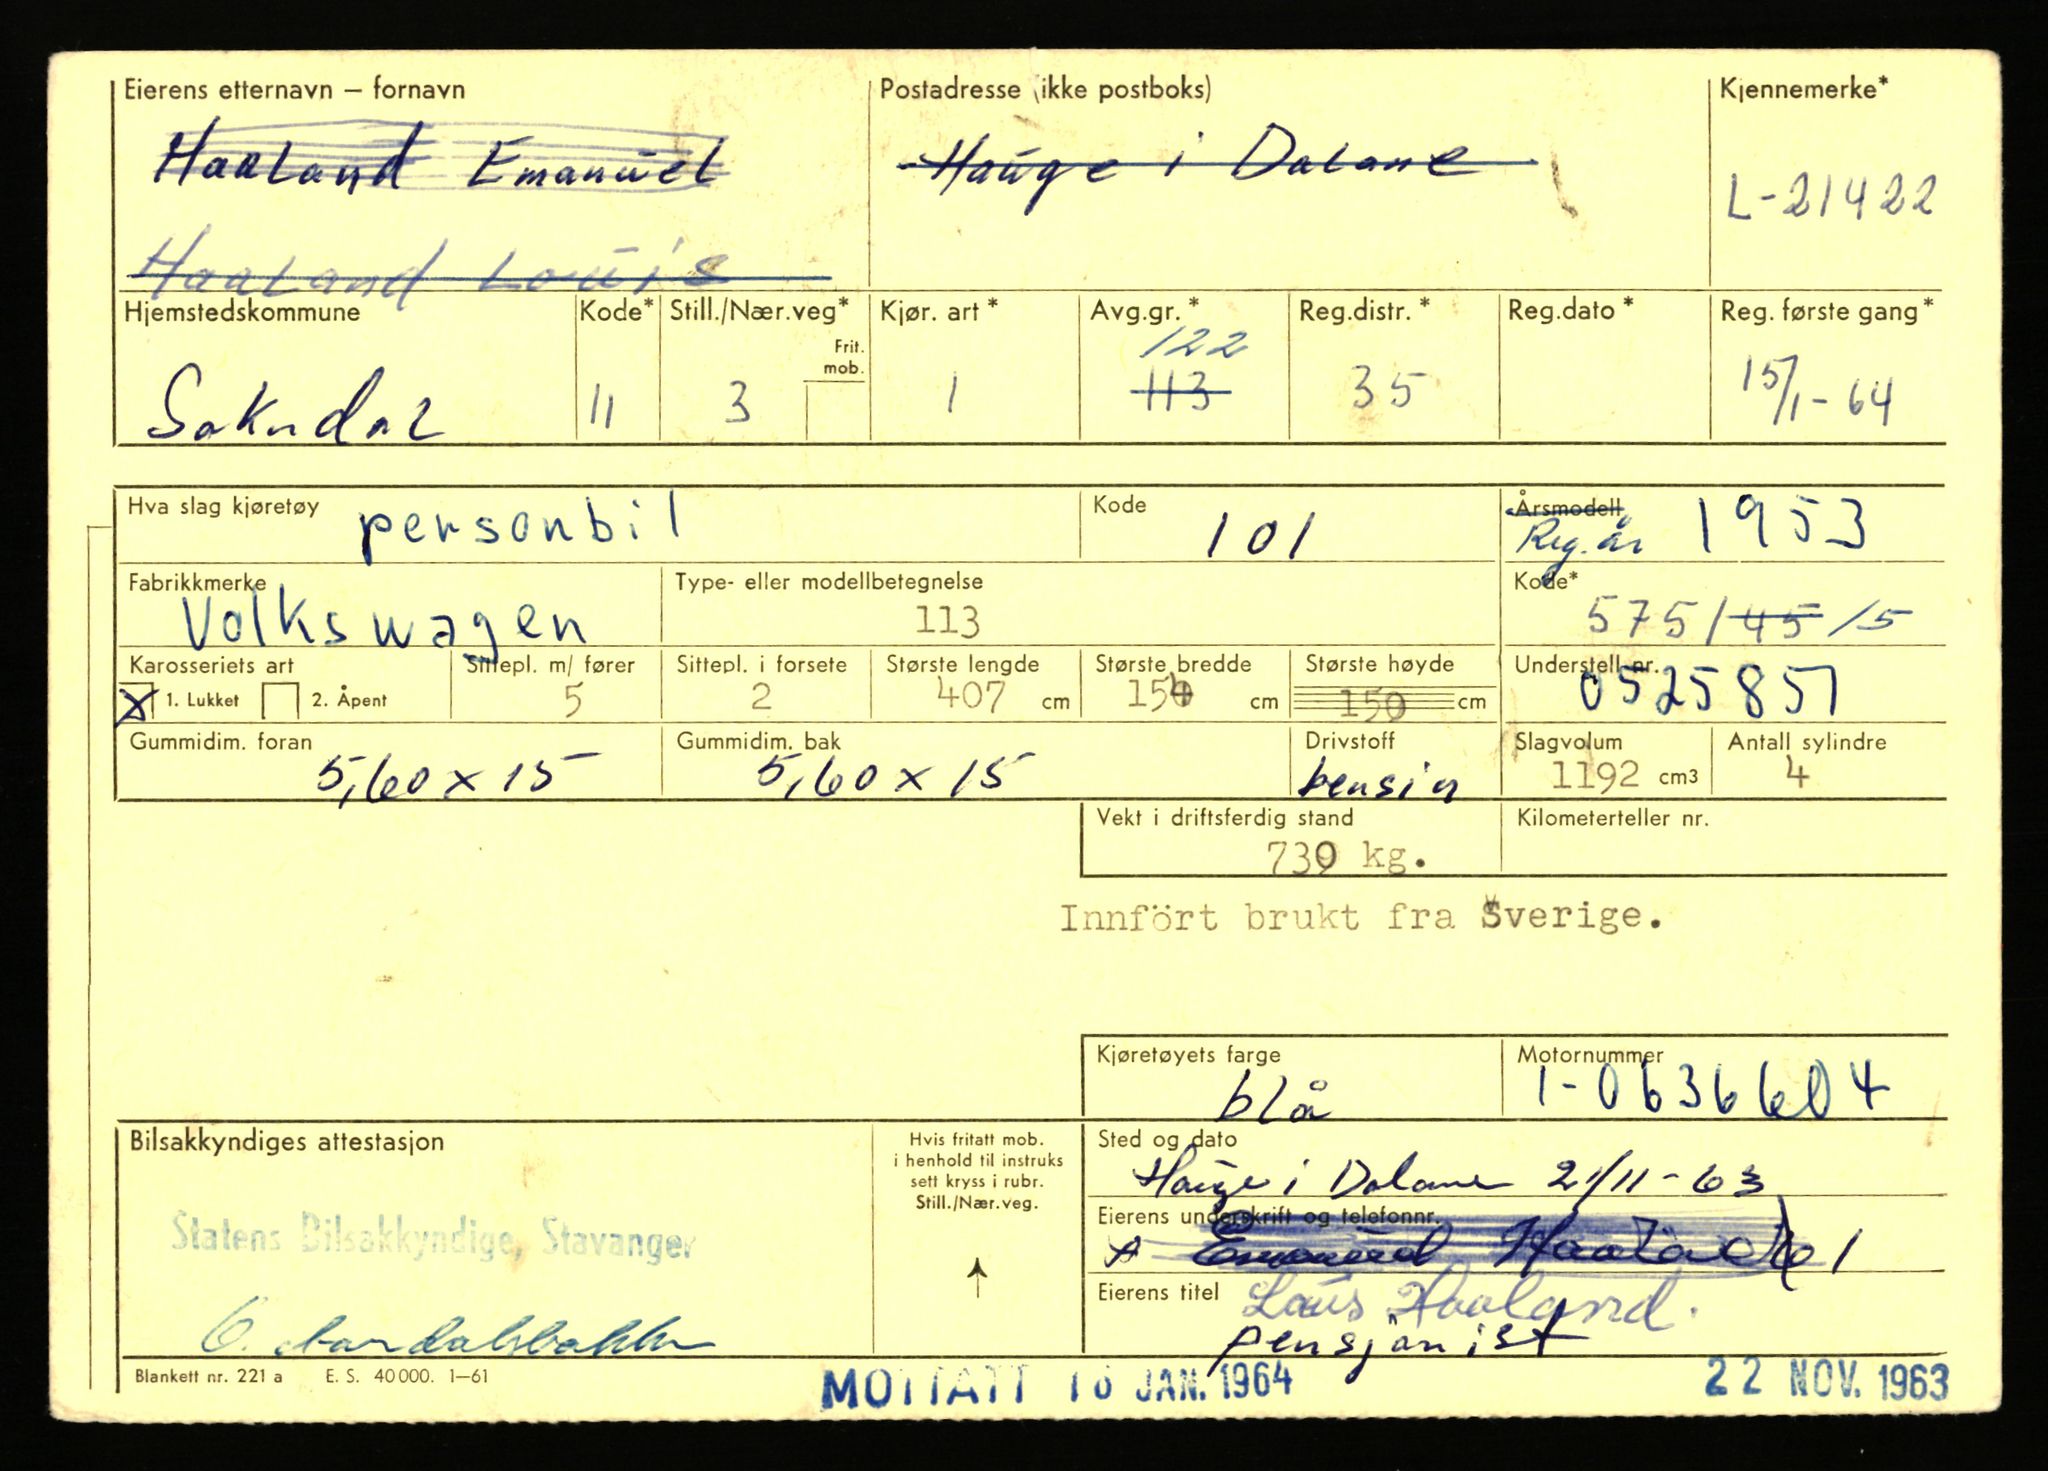 Eierens etternavn – fornavn
Postadresse (ikke postboks)
Kjennemerke*
Haaland Emanuel
Hauge i Dalane
L-21422
Haaland Louis
Hjemstedskommune
Kode*
Still./Nær.veg*
Kjør. art *
Avg.gr. *
Reg.distr. *
Reg.dato *
Reg. første gang*
Frit. mob.
122
Sokndal
11
3
1
113
35
15/1-64
Hva slag kjøretøy
personbil
Kode
101
Årsmodell
Reg. år
1953
Fabrikkmerke
Volkswagen
Type- eller modellbetegnelse
113
Kode*
575/45/5
Karosseriets art
X 1. Lukket
2. Åpent
Sittepl. m/ fører
5
Sittepl. i forsete
2
Største lengde
407 cm
Største bredde
154 cm
Største høyde
150 cm
Understell nr.
0525857
Gummidim. foran
5,60 x 15
Gummidim. bak
5,60 x 15
Drivstoff
bensin
Slagvolum
1192 cm3
Antall sylindre
4
Vekt i driftsferdig stand
730 kg.
Kilometerteller nr.
Innfört brukt fra Sverige.
Kjøretøyets farge
blå
Motornummer
1-0636604
Bilsakkyndiges attestasjon
Hvis fritatt mob.
i henhold til instruks
sett kryss i rubr.
Still./Nær.veg.
Sted og dato
Hauge i Dalane 21/11-63
Eierens underskrift og telefonnr.
Emanuel Haaland
Statens Bilsakkyndige, Stavanger
Eierens titel
Louis Haaland.
pensjonist
Blankett nr. 221 a
E. S. 40 000. 1–61
MOTTATT 16 JAN. 1964
22 NOV. 1963